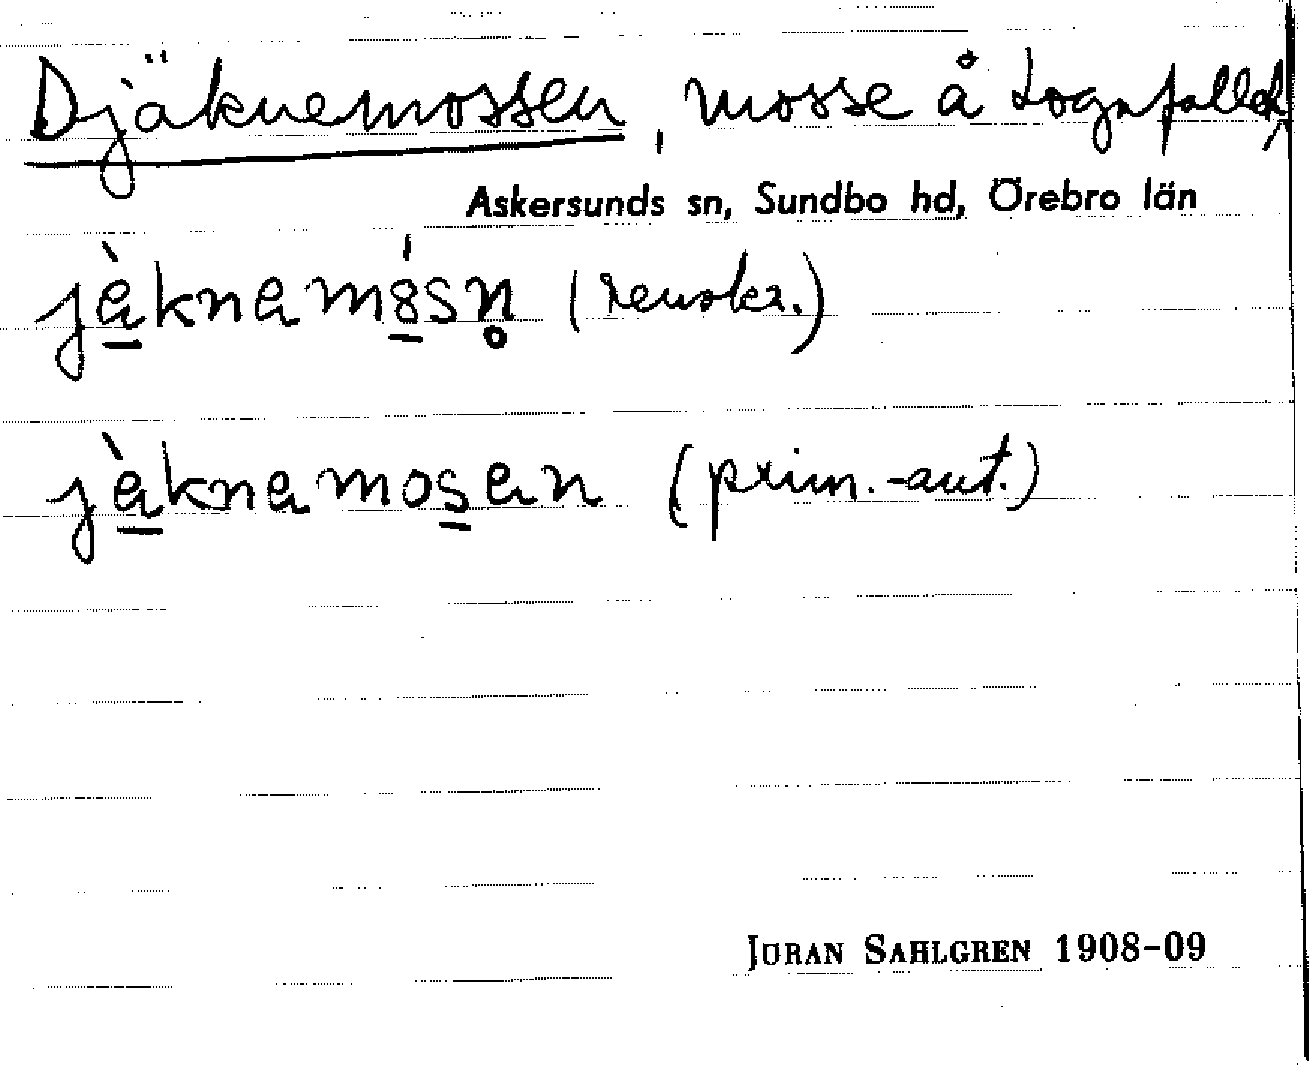 Djäknemossen, mosse å Lognfallet,
Askersunds sn, Sundbo hd, Örebro län
jä̀knamósn̥ (renskr.)
jä̀knamosen (prim.-ant.)
JÖRAN SAHLGREN 1908-09